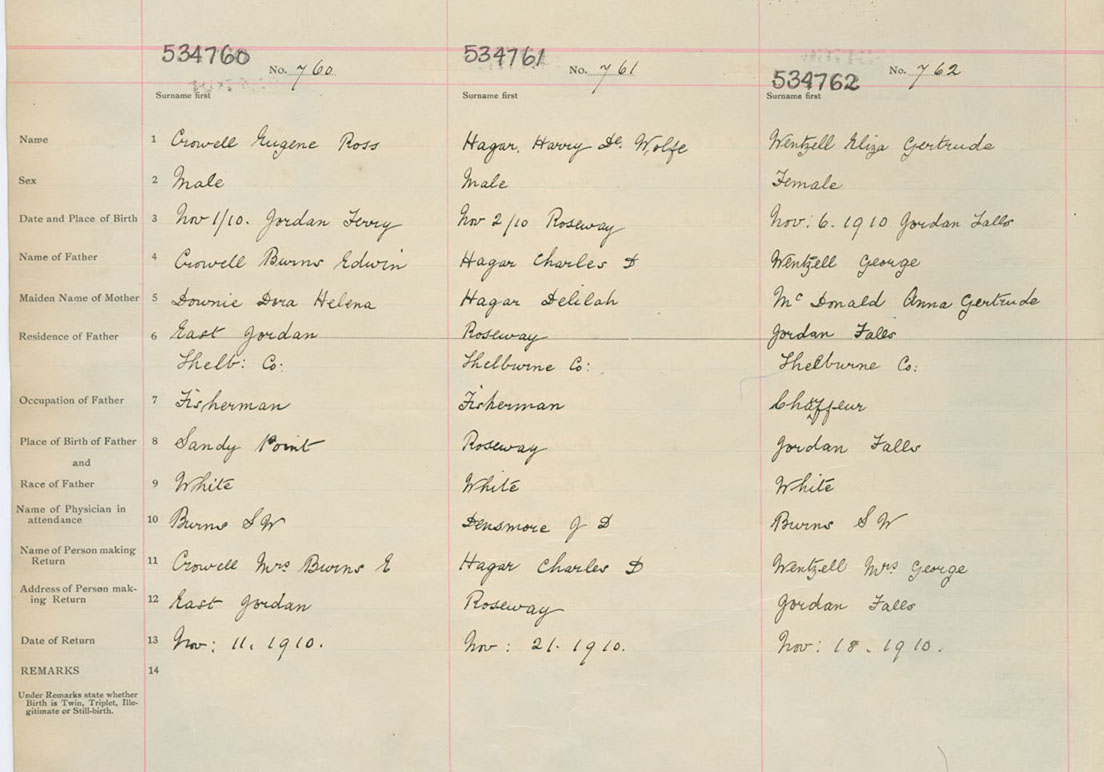 534760 No. 760 534761 No. 761 534762 No. 762
Surname first Surname first Surname first
Name 1 Crowell Eugene Ross Hagar. Harry De. Wolfe Wentzell Eliza Gertrude
Sex 2 Male Male Female
Date and Place of Birth 3 Nov 1/10. Jordan Ferry Nov 2/10 Roseway Nov: 6. 1910 Jordan Falls
Name of Father 4 Crowell Burns Edwin Hagar Charles D Wentzell George
Maiden Name of Mother 5 Downie Dora Helena Hagar Delilah Mc Donald Anna Gertrude
Residence of Father 6 East Jordan Roseway Jordan Falls
Shelb: Co: Shelburne Co: Shelburne Co:
Occupation of Father 7 Fisherman Fisherman Chaffeur
Place of Birth of Father 8 Sandy Point Roseway Jordan Falls
and
Race of Father 9 White White White
Name of Physician in
attendance 10 Burns S W Densmore J D Burns S W
Name of Person making
Return 11 Crowell Mrs Burns E Hagar Charles D Wentzell Mrs George
Address of Person mak-
ing Return 12 East Jordan Roseway Jordan Falls
Date of Return 13 Nov: 11. 1910. Nov: 21. 1910. Nov: 18. 1910.
REMARKS 14
Under Remarks state whether
Birth is Twin, Triplet, Ille-
gitimate or Still-birth.